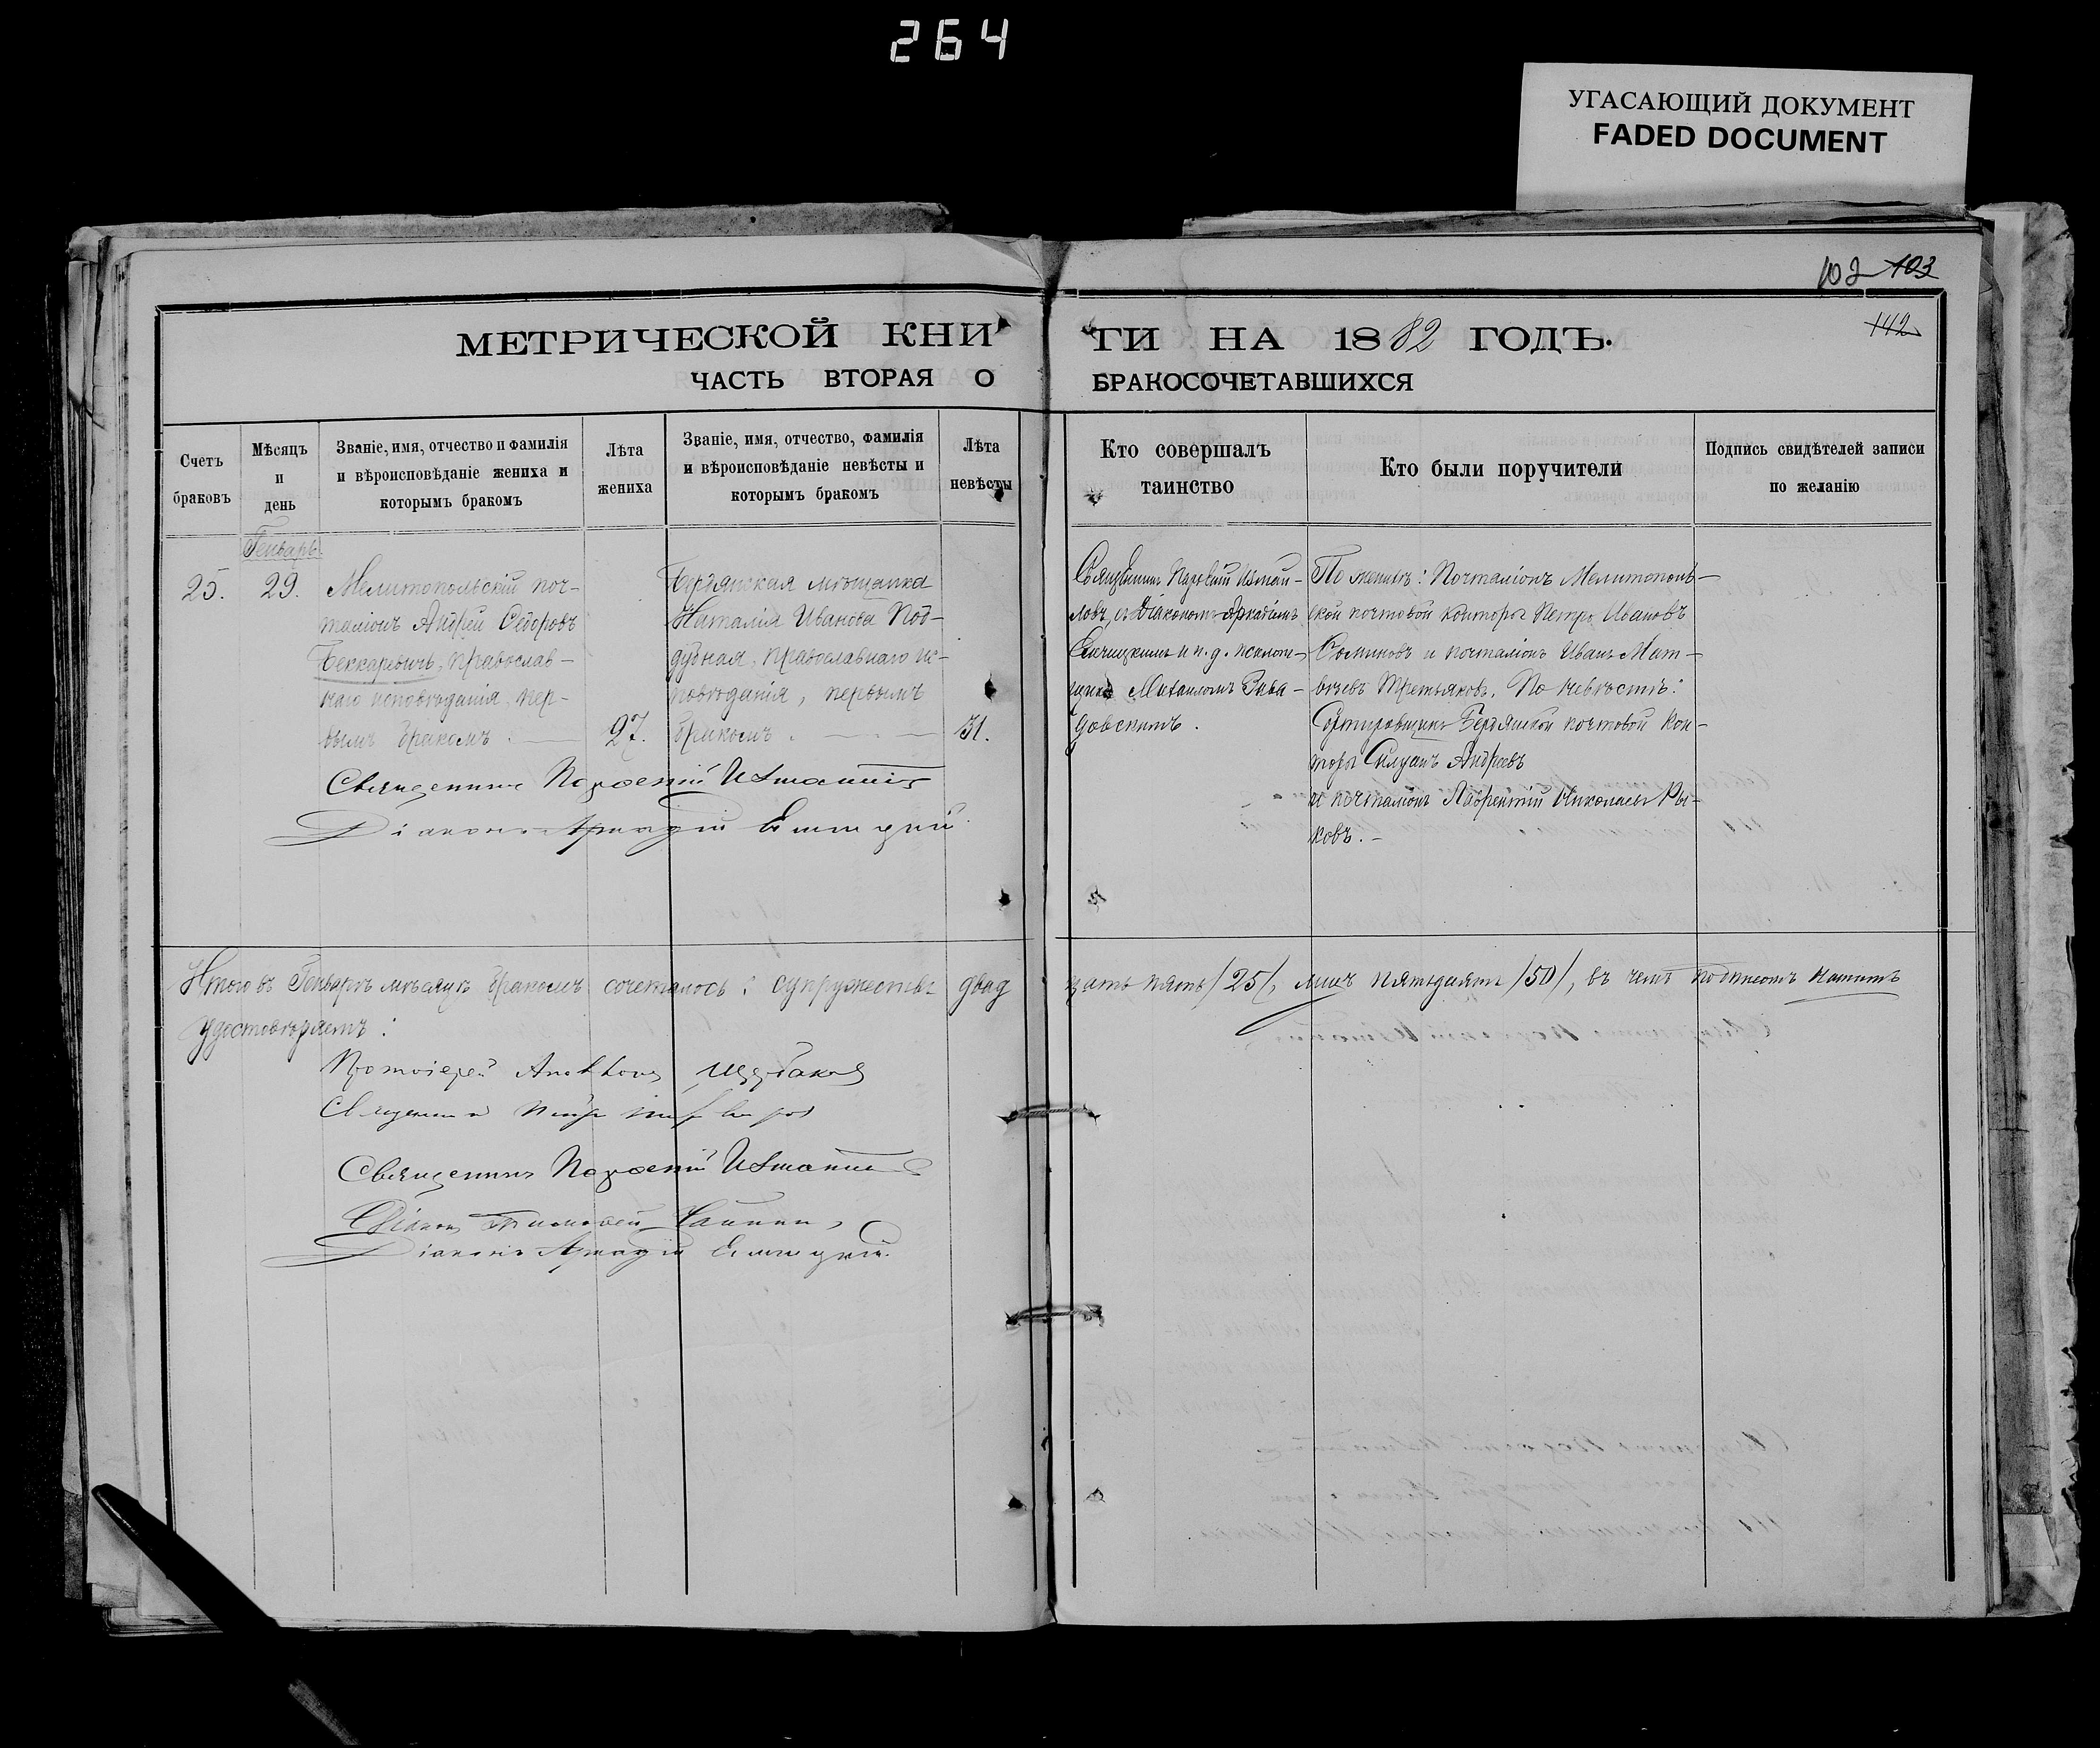 264
УГАСАЮЩИЙ ДОКУМЕНТ
FADED DOCUMENT
102 103
142
МЕТРИЧЕСКОЙ КНИ
ГИ НА 1882 ГОДЪ.
ЧАСТЬ ВТОРАЯ О
БРАКОСОЧЕТАВШИХСЯ
Счетъ
браковъ
Мѣсяцъ
и
день
Званіе, имя, отчество и фамилія
и вѣроисповѣданіе жениха и
которымъ бракомъ
Лѣта
жениха
Званіе, имя, отчество, фамилія
и вѣроисповѣданіе невѣсты и
которымъ бракомъ
Лѣта
невѣсты
Кто совершалъ
таинство
Кто были поручители
Подпись свидѣтелей записи
по желанію
Генварь
25.
29.
Мелитопольскій поч-
таліонъ Андрей Ѳедоровъ
Беккаревичъ, православ-
наго исповѣданія, пер-
вымъ бракомъ.
27.
Бердянская мѣщанка
Наталія Иванова Под-
дубная, православнаго ис-
повѣданія, первымъ
бракомъ.
31.
Священникъ
діакономъ Аркадіемъ
и и. д. псалом-
щика Михаиломъ
По женихѣ: Почталіонъ Мелитополь-
ской почтовой конторы Петръ Ивановъ
и почталіонъ Иванъ Мат-
вѣевъ Третьяковъ. По невѣстѣ:
Сортировщикъ Бердянской почтовой кон-
торы Силуанъ Андреевъ
и почталіонъ Лаврентій Николаевъ Ры-
ковъ. -
Священникъ
Діаконъ Аркадій
Итого въ Генварѣ мѣсяцѣ бракомъ сочеталось: супружествъ двад
цать пять /25/, лицъ пятьдесятъ /50/, въ чемъ подписомъ нашимъ
удостовѣряемъ:
Протоіерей Щербаковъ
Священникъ
Священникъ
Діаконъ Тимоѳей
Діаконъ Аркадій